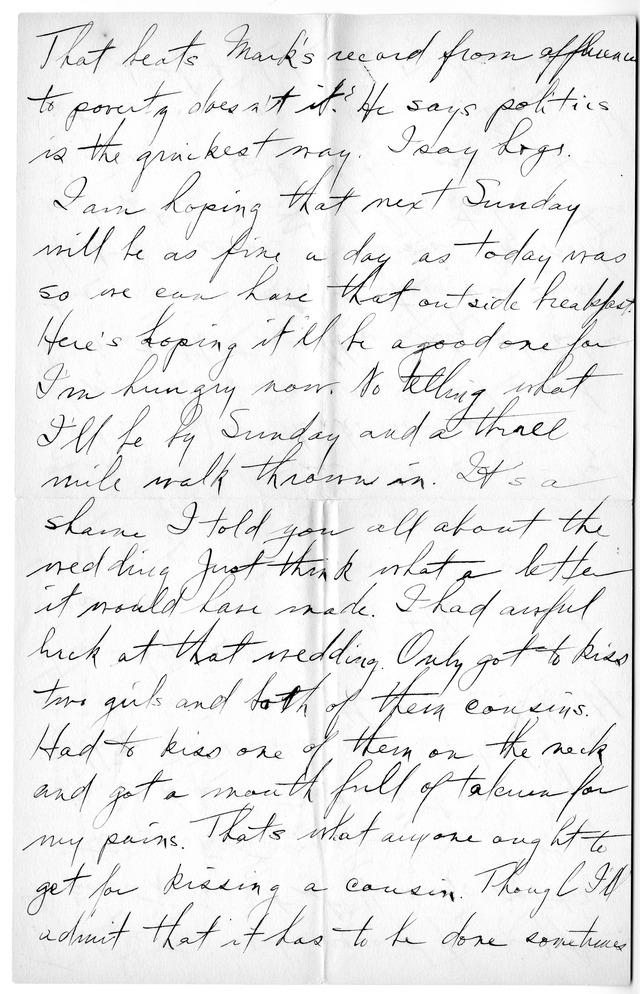 That beats Mark's record from affluence
to poverty doesn't it? He says politics
is the quickest way. I say hogs.
I am hoping that next Sunday
will be as fine a day as today was
so we can have that outside breakfast.
Here's hoping it'll be a good one for
I'm hungry now. No telling what
I'll be by Sunday and a three
mile walk thrown in. It's a
shame I told you all about the
wedding Just think what a letter
it would have made. I had awful
luck at that wedding. Only got to kiss
two girls and both of them cousins.
Had to kiss one of them on the neck
and got a mouth full of talcum for
my pains. That's what anyone ought to
get for kissing a cousin. Though I'll
admit that it has to be done sometimes